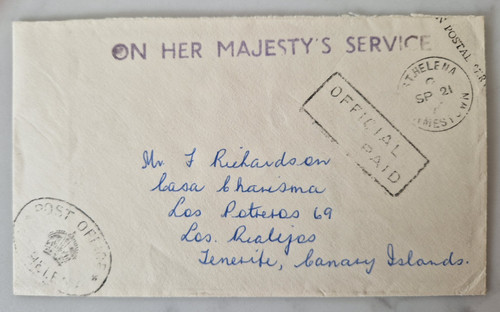 ON HER MAJESTY'S SERVICE
POSTAL
ST. HELENA
C
SP 21
OFFICIAL
PAID
Mr F Richardson
Casa Charisma
Los Potreros 69
Los. Realijos
Tenerife, Canary Islands.
POST OFFICE